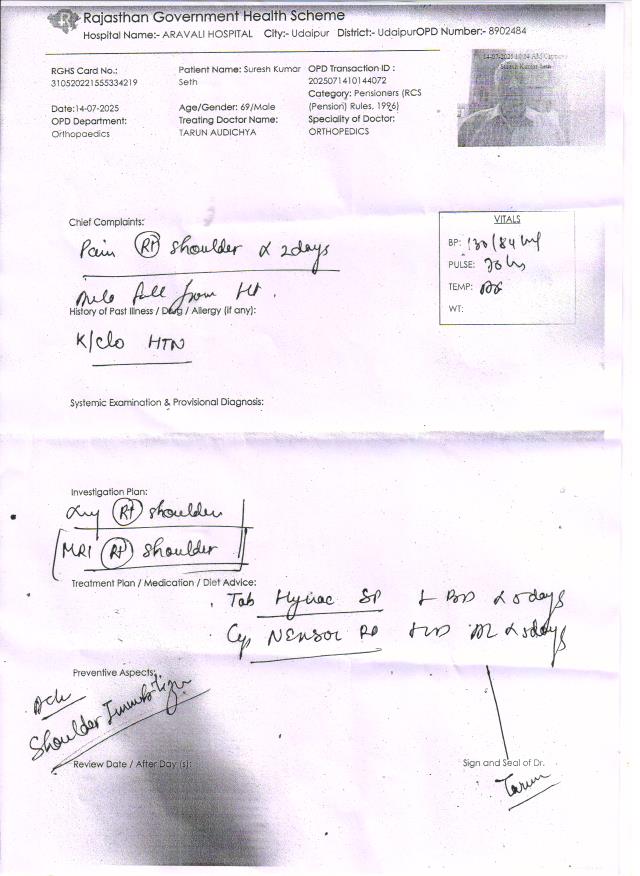 Rajasthan Government Health Scheme
Hospital Name:- ARAVALI HOSPITAL City:- Udaipur District:- Udaipur OPD Number:- 8902484
RGHS Card No.: 310520221555334219
Patient Name: Suresh Kumar Seth
OPD Transaction ID : 2025071410144072
14-07-2025 10:14 AM
Suresh Kumar Seth
Category: Pensioners (RCS (Pension) Rules, 1996)
Date:14-07-2025
Age/Gender: 69/Male
OPD Department: Orthopaedics
Treating Doctor Name: TARUN AUDICHYA
Speciality of Doctor: ORTHOPEDICS
Chief Complaints:
Pain Rt shoulder x 2days
fall from Ht.
VITALS
BP: 130/84
PULSE:
TEMP:
WT:
History of Past Illness / Drug / Allergy (if any):
K/c/o HTN
Systemic Examination & Provisional Diagnosis:
Investigation Plan:
Rt shoulder
MRI Rt shoulder
Treatment Plan / Medication / Diet Advice:
Tab SP BD x 5days
Cap RD x 5days
Preventive Aspects:
Shoulder
Review Date / After Day (s):
Sign and Seal of Dr.
Tarun